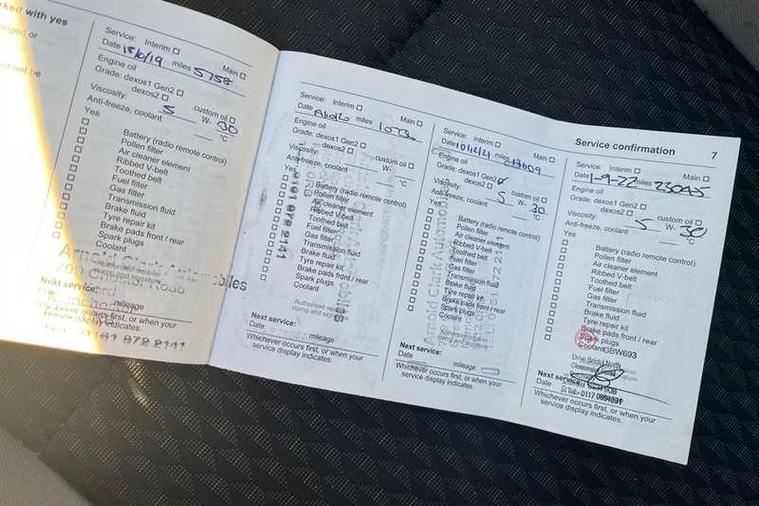 rked with yes
nged or
not be
Service: Interim
Main
Date 15/10/19 miles 5758
Engine oil
Grade: dexos1 Gen2
dexos2
custom oil
Viscosity: 5 W- 30
Anti-freeze, coolant °C
Yes
Battery (radio remote control)
Pollen filter
Air cleaner element
Ribbed V-belt
Toothed belt
Fuel filter
Gas filter
Transmission fluid
Brake fluid
Tyre repair kit
Brake pads front / rear
Spark plugs
Coolant
Arnold Clark Automobiles
Next service:
mileage
occurs first, or when your
service display indicates.
0161 872 2141
Service: Interim
Main
Date miles
Engine oil
Grade: dexos1 Gen2
dexos2
custom oil
Viscosity: W-
Anti-freeze, coolant °C
Yes
Battery (radio remote control)
Pollen filter
Air cleaner element
Ribbed V-belt
Toothed belt
Fuel filter
Gas filter
Transmission fluid
Brake fluid
Tyre repair kit
Brake pads front / rear
Spark plugs
Coolant
0161 872 2141
Authorised repairer
stamp and signature
Next service:
Date mileage
Whichever occurs first, or when your
service display indicates.
Service: Interim
Main
Date miles
Engine oil
Grade: dexos1 Gen2
dexos2
custom oil
Viscosity: 5 W- 30
Anti-freeze, coolant °C
Yes
Battery (radio remote control)
Pollen filter
Air cleaner element
Ribbed V-belt
Toothed belt
Fuel filter
Gas filter
Transmission fluid
Brake fluid
Tyre repair kit
Brake pads front / rear
Spark plugs
Coolant
Arnold Clark Automobiles
Next service:
Date mileage
Whichever occurs first, or when your
service display indicates.
Service confirmation 7
Service: Interim
Main
Date 1-9-22 miles
Engine oil
Grade: dexos1 Gen2
dexos2
custom oil
Viscosity: 5 W- 30
Anti-freeze, coolant °C
Yes
Battery (radio remote control)
Pollen filter
Air cleaner element
Ribbed V-belt
Toothed belt
Fuel filter
Gas filter
Transmission fluid
Brake fluid
Tyre repair kit
Brake pads front / rear
plugs
Coolant GBW693
Drive Bristol North
Next service:
Date Tel: 0117
Whichever occurs first, or when your
service display indicates.